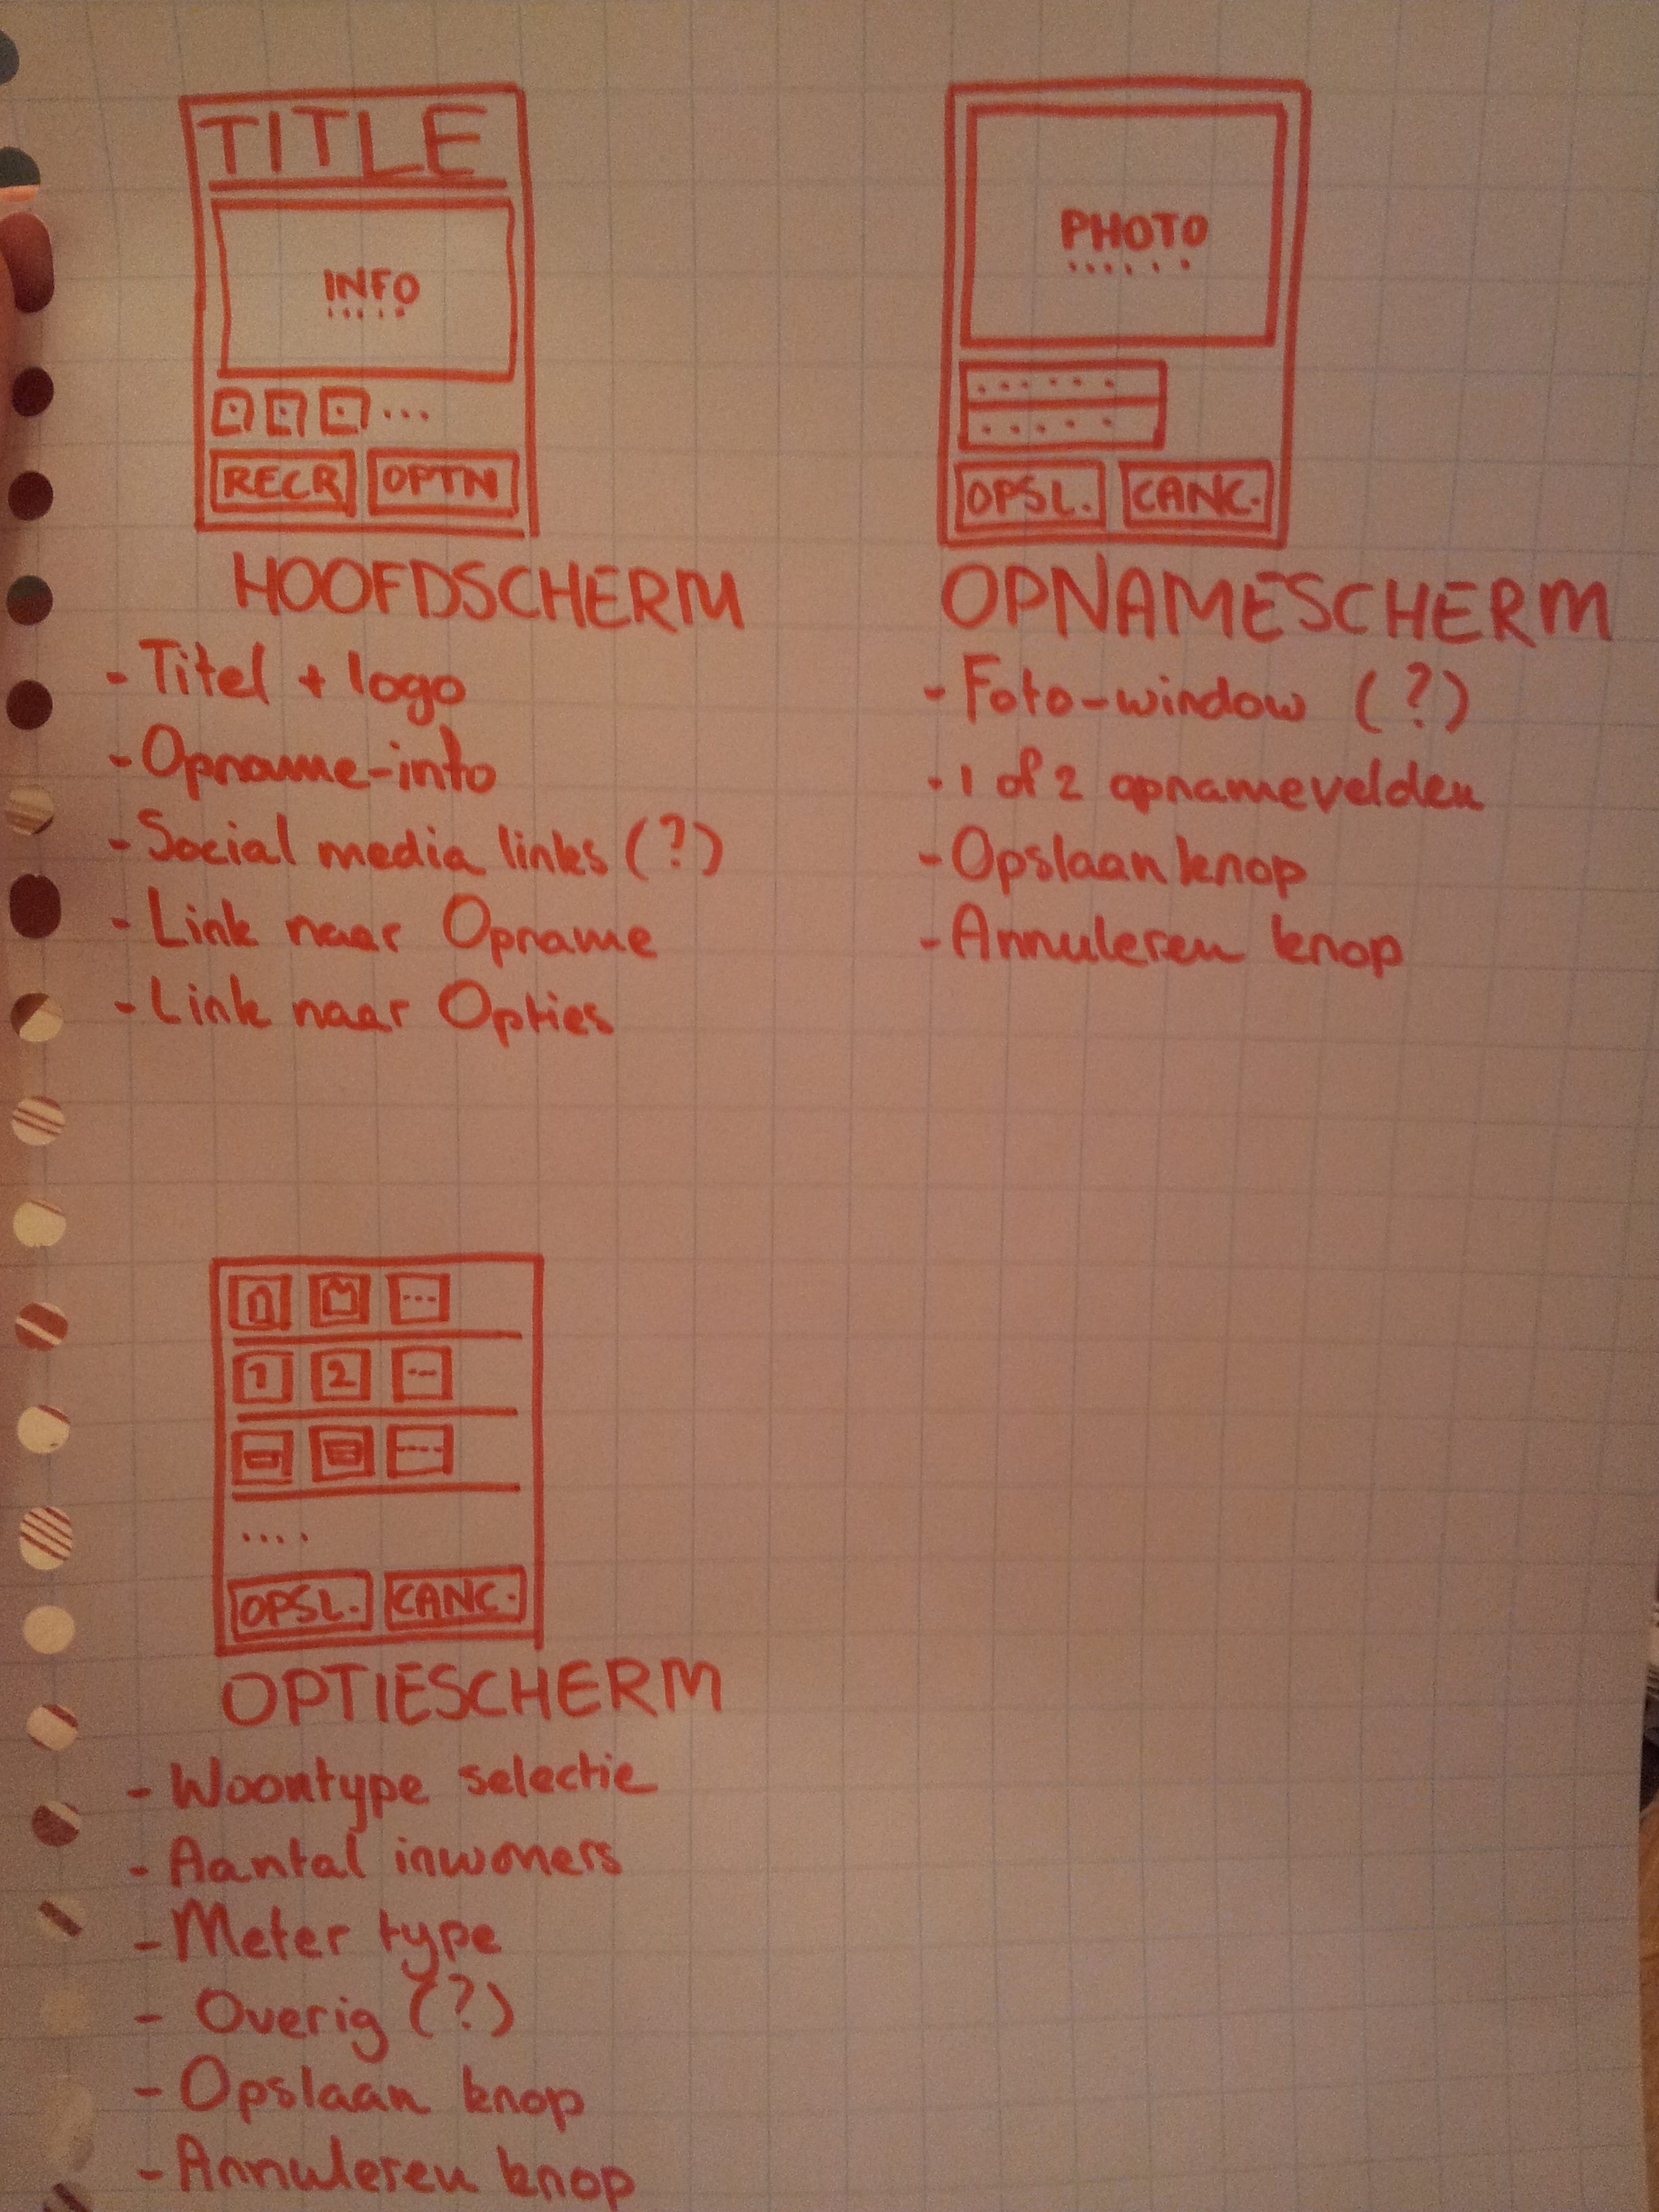 TITLE
INFO
RECR OPTN
HOOFDSCHERM
- Titel + logo
- Opname-info
- Social media links (?)
- Link naar Opname
- Link naar Opties
PHOTO
OPSL. CANC.
OPNAMESCHERM
- Foto-window (?)
- 1 of 2 opnamevelden
- Opslaan knop
- Annuleren knop
1 2
OPSL. CANC.
OPTIESCHERM
- Woontype selectie
- Aantal inwoners
- Meter type
- Overig (?)
- Opslaan knop
- Annuleren knop